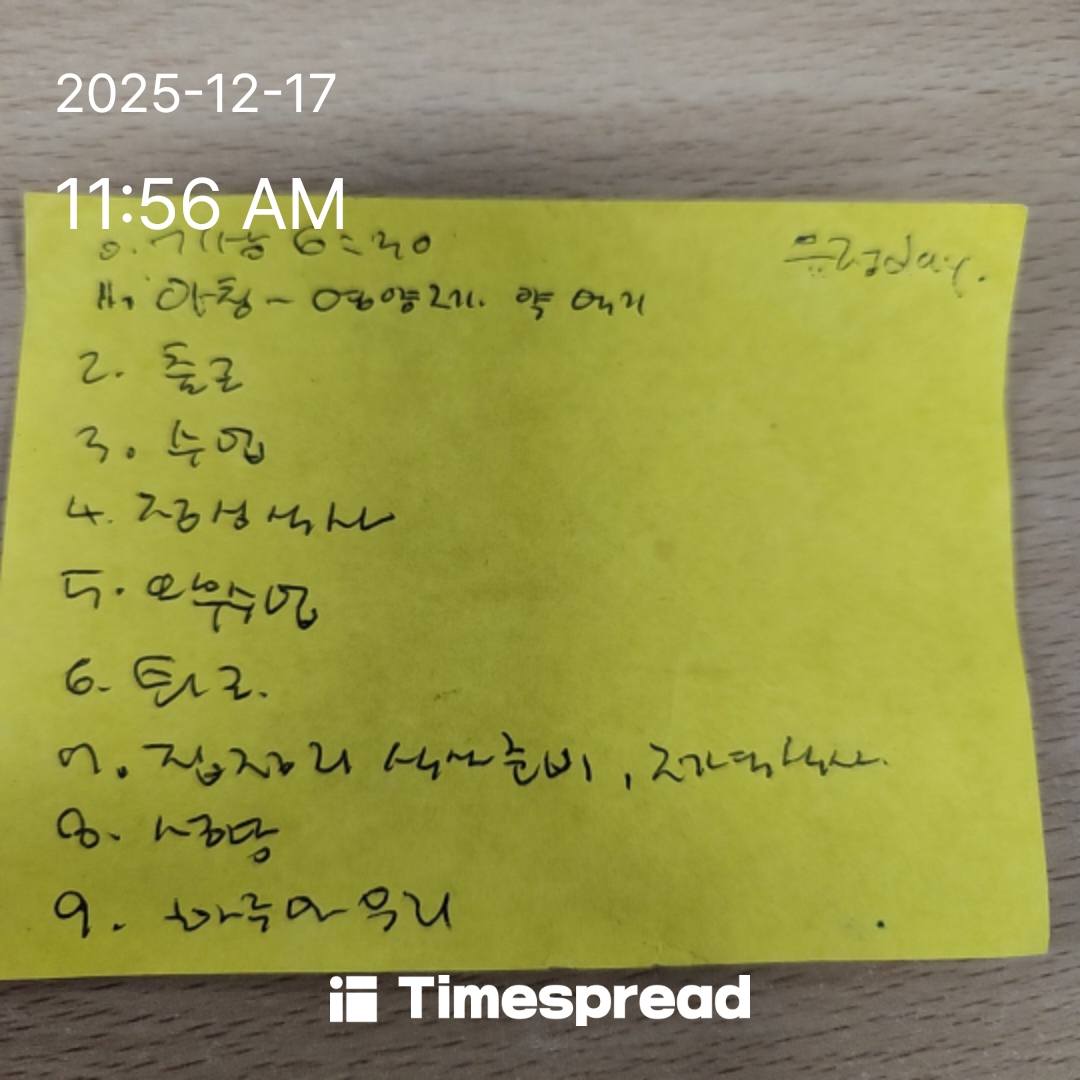 2025-12-17
11:56 AM
0. 기상 6:30
1. 아침 - 영양제. 약 먹기
2. 출근
3. 수업
4. 점심식사
5. 오후수업
6. 퇴근.
7. 집정리 식사준비, 저녁식사.
8. 성당
9. 하루마무리
Timespread